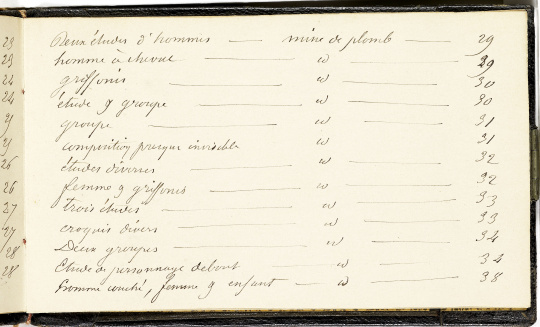 23 Deux études d'hommes — mine de plomb — 29
23 homme à cheval — id — 29
24 griffonis — id — 30
24 étude & groupe — id — 30
31 groupe — id — 31
31 composition presque invisible id — 31
26 études diverses — id — 32
26 femme & griffonis — id — 32
27 trois études — id — 33
27 croquis divers — id — 33
28 Deux groupes — id — 34
28 Etude de personnage debout — id — 34
homme couché, femme & enfant — id — 38